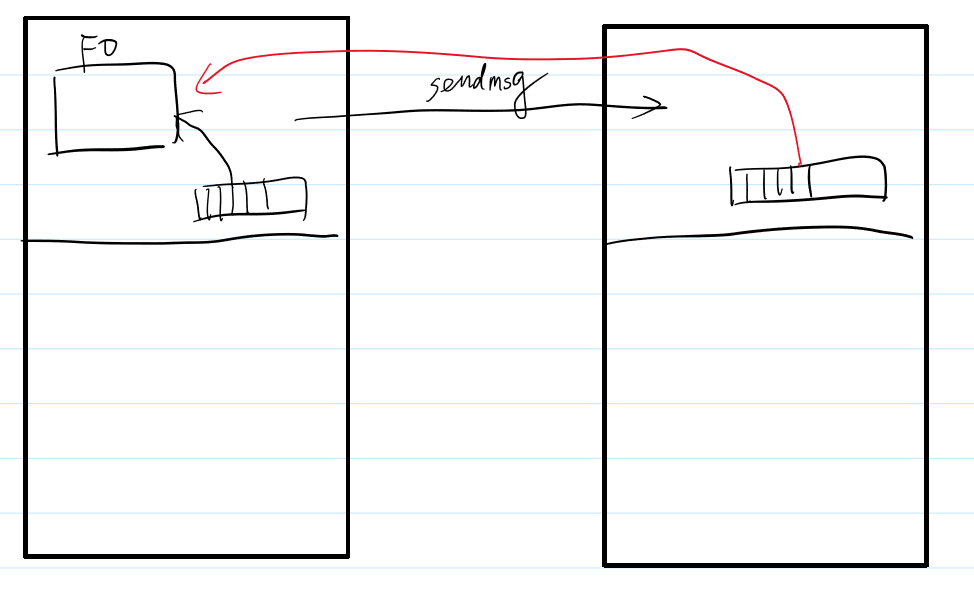 FO
sendmsg